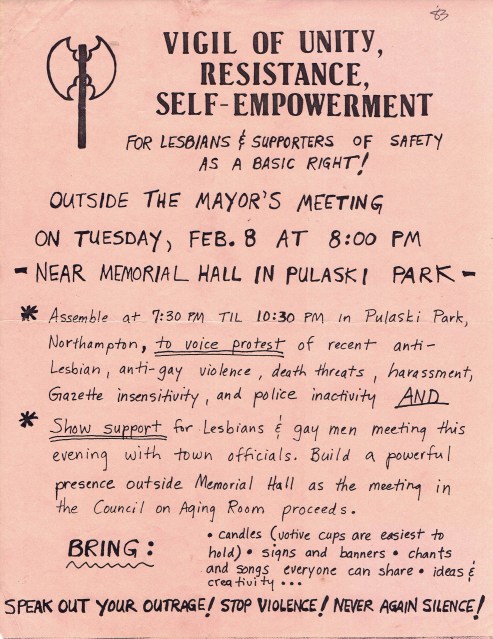 '83
VIGIL OF UNITY,
RESISTANCE,
SELF-EMPOWERMENT
FOR LESBIANS & SUPPORTERS OF SAFETY
AS A BASIC RIGHT!
OUTSIDE THE MAYOR'S MEETING
ON TUESDAY, FEB. 8 AT 8:00 PM
- NEAR MEMORIAL HALL IN PULASKI PARK -
* Assemble at 7:30 PM TIL 10:30 PM in Pulaski Park,
Northampton, to voice protest of recent anti-
Lesbian, anti-gay violence, death threats, harassment,
Gazette insensitivity, and police inactivity AND
* Show support for Lesbians & gay men meeting this
evening with town officials. Build a powerful
presence outside Memorial Hall as the meeting in
the Council on Aging Room proceeds.
BRING:
• candles (votive cups are easiest to
hold) • signs and banners • chants
and songs everyone can share • ideas &
creativity ...
SPEAK OUT YOUR OUTRAGE! STOP VIOLENCE! NEVER AGAIN SILENCE!